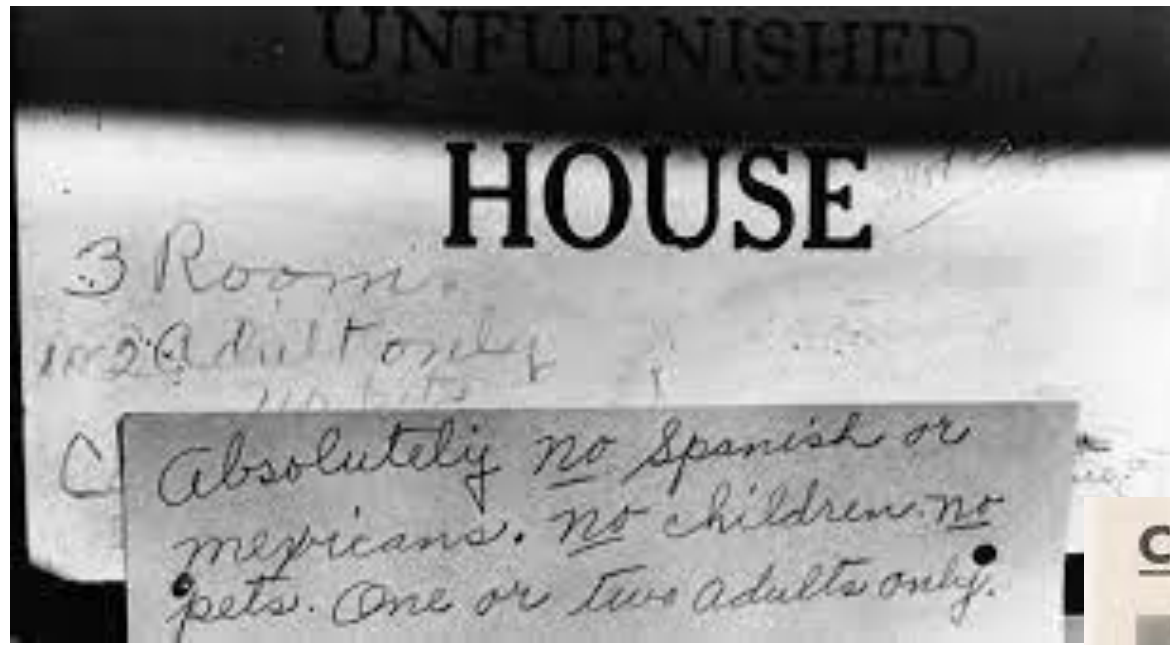 UNFURNISHED
HOUSE
3 Room
Adult only
no pets
Absolutely no Spanish or
mexicans. no children. no
pets. One or two adults only.